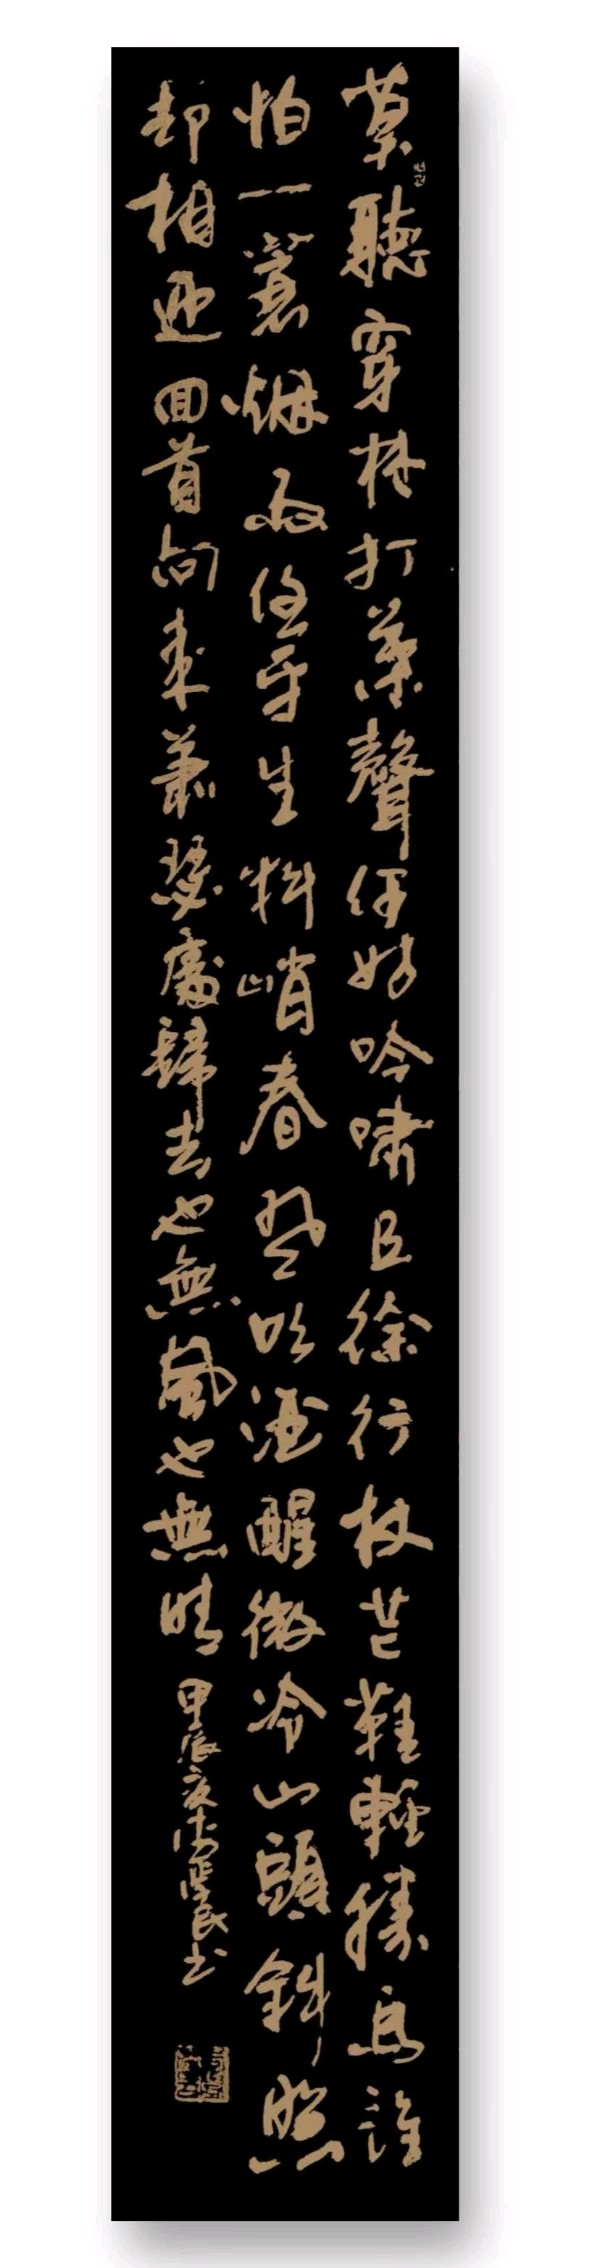 莫聽穿林打葉聲何妨吟嘯且徐行杖芒鞋輕勝馬誰
怕一蓑烟雨任平生料峭春風吹酒醒微冷山頭斜照
却相迎回首向来蕭瑟處歸去也無風也無晴甲辰夏民书